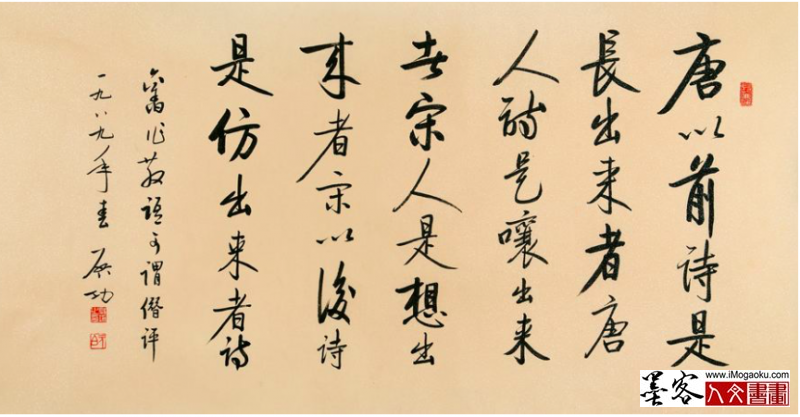 唐以前诗是
長出来者唐
人诗是嚷出来
者宋人是想出
来者宋以後诗
是仿出来者诗
舊作散語可謂僭評
一九八九年春 启功
www.iMogaoku.com
墨客人文書畫